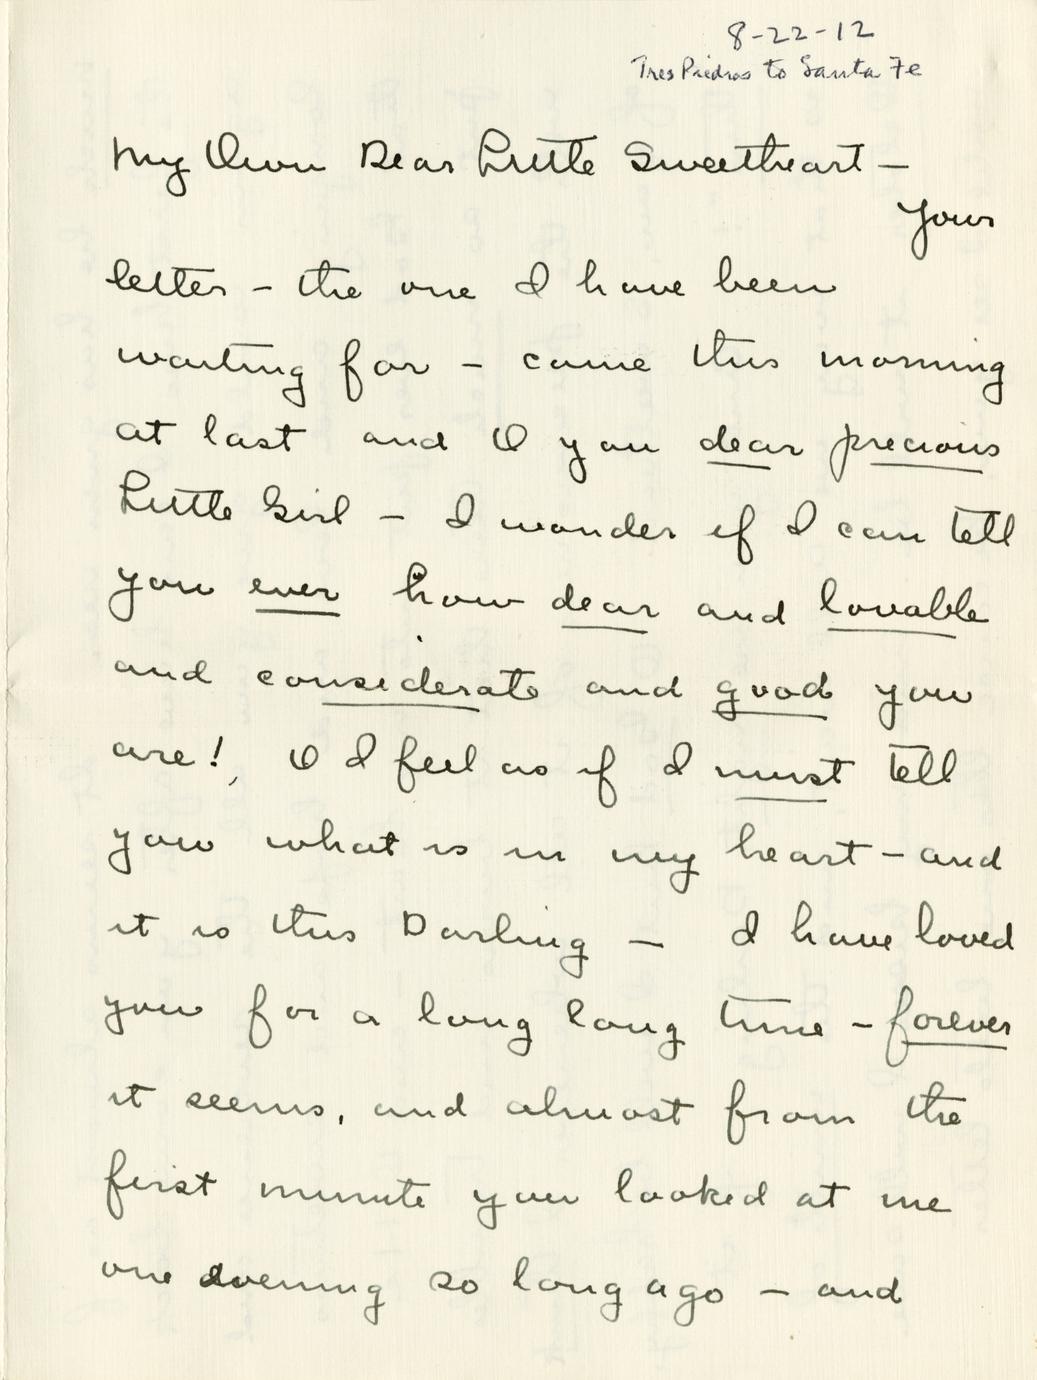 8-22-12
Tres Piedras to Santa Fe
My Own Dear Little Sweetheart -
Your
letter - the one I have been
waiting for - came this morning
at last and O you dear precious
Little Girl - I wonder if I can tell
you ever how dear and lovable
and considerate and good you
are! O I feel as if I must tell
you what is in my heart - and
it is this Darling - I have loved
you for a long long time - forever
it seems, and almost from the
first minute you looked at me
one evening so long ago - and